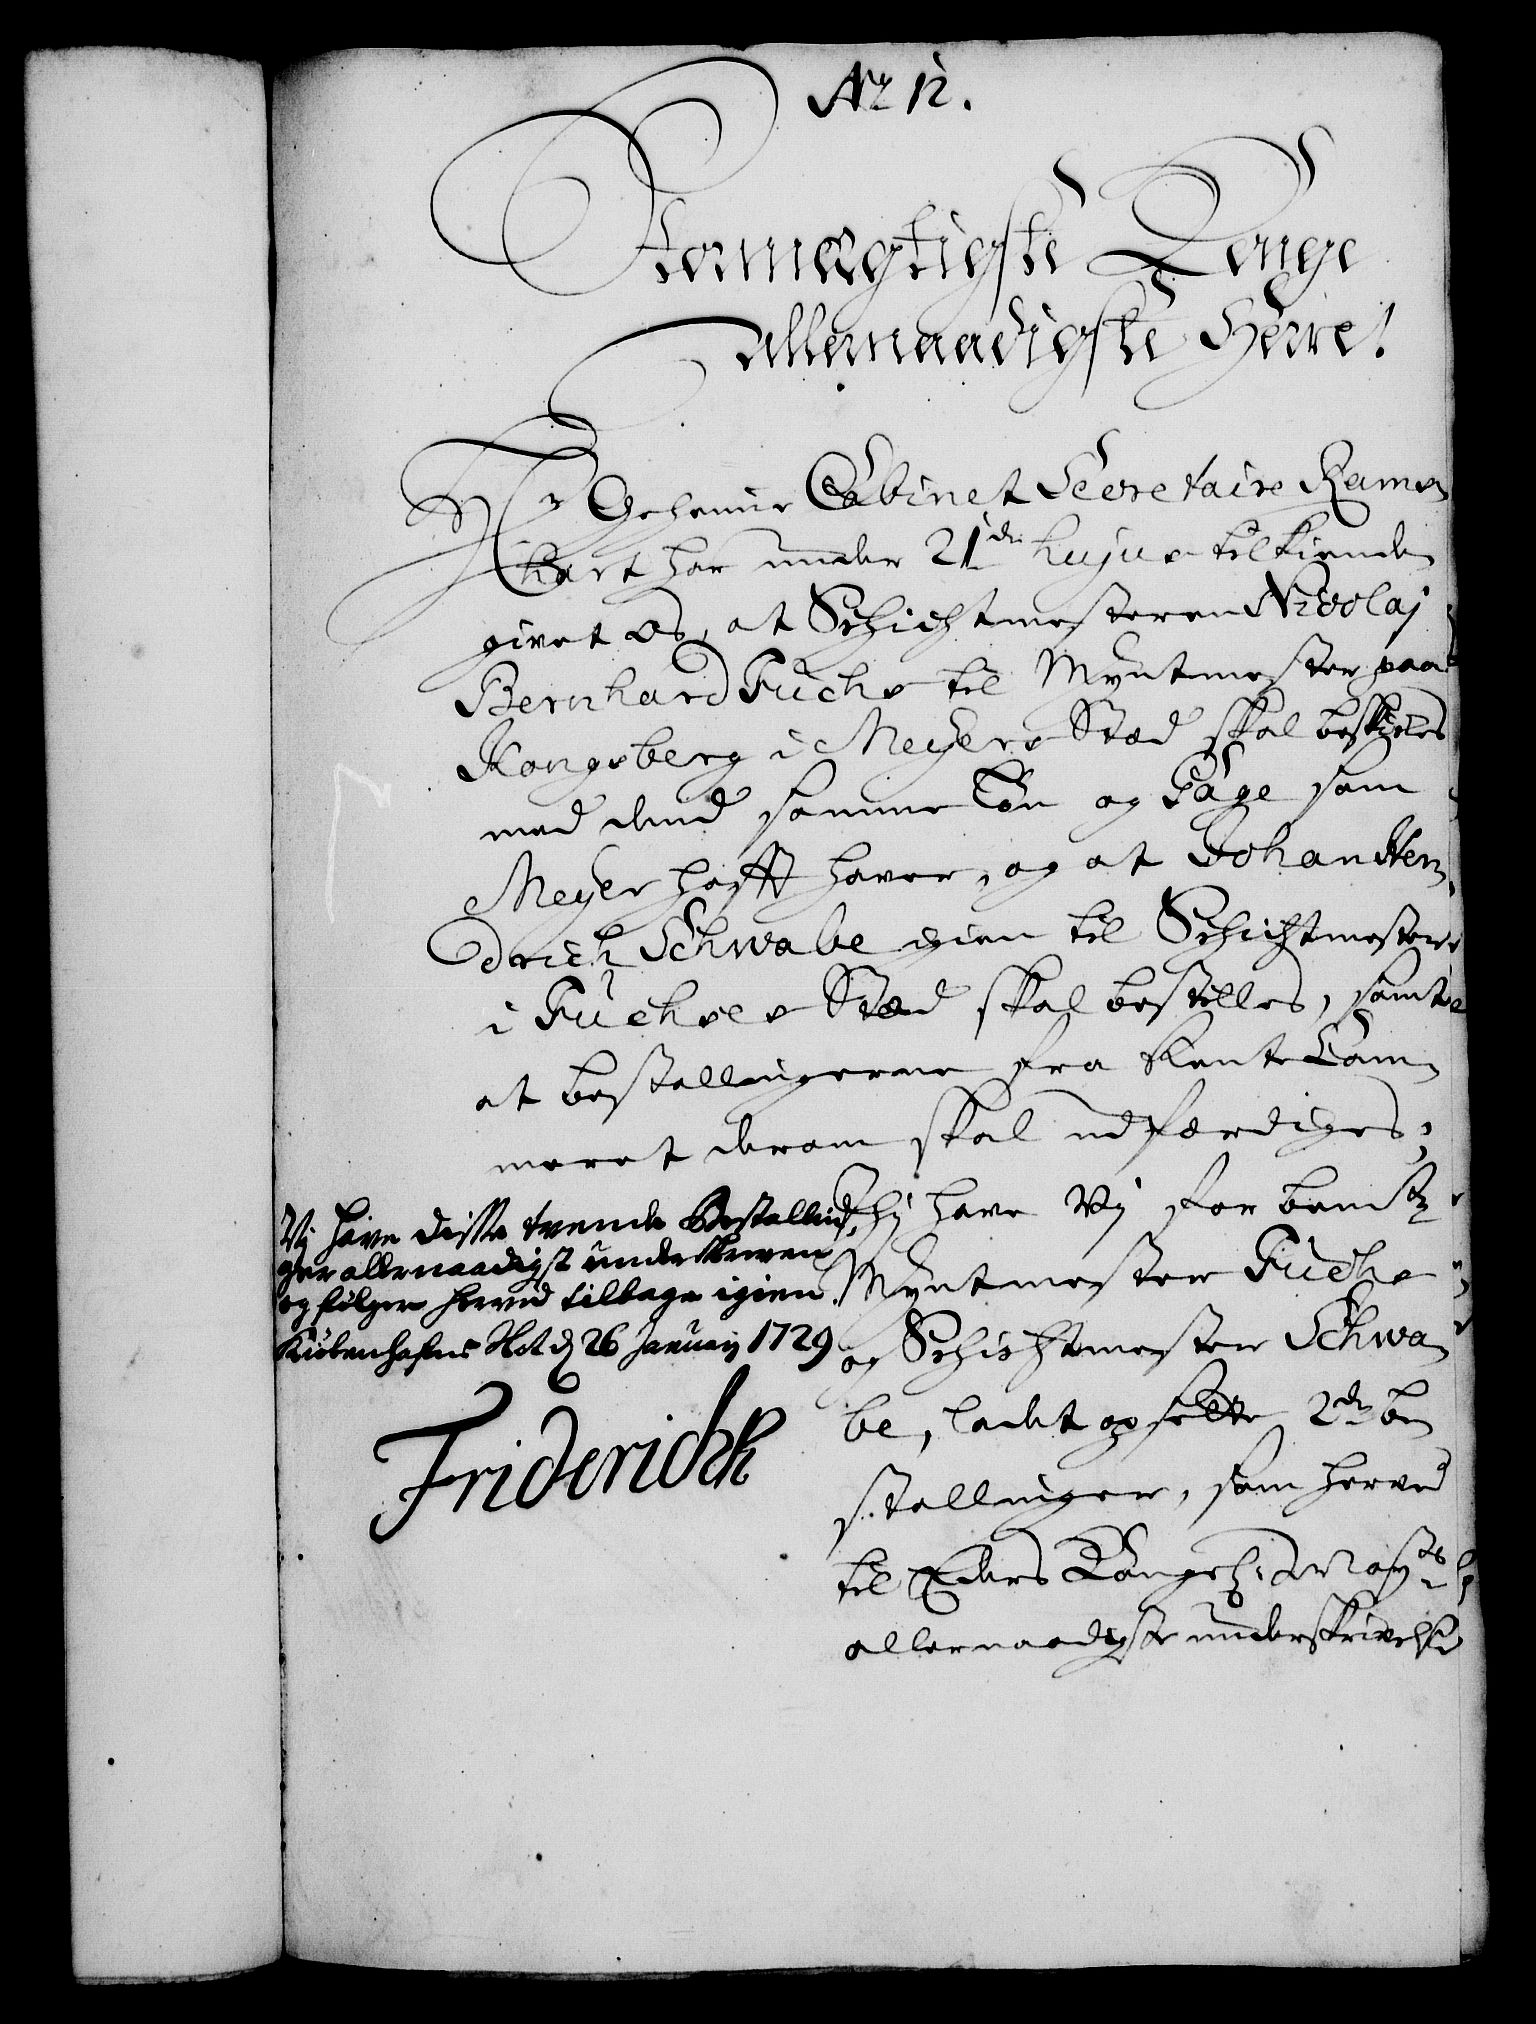 No 12.
Stormægtigste Konge
allernaadigste Herre!
Hr Geheime Cabinet Secretaire Ramse
hart har under 21de hujus tilkiende
givet os, at Schichtmesteren Nicolaj
Bernhard Fuchs til Myntmester paa
Kongsberg i Meyers Sted skal beskikes
med dend samme Løn og Gage som
Meyer hafft haver, og at Johan Hen
drich Schwabe igien til Schichtmester
i Fuchses Sted skal bestilles, samt
at bestallingerne fra Rente Cam
meret derom skal udfærdiges;
Thj have Vj for bemte
Myntmester Fuchs
og Schichtmester Schwa
be, ladet opsette 2de be
stallinger, som herved
til Eders Kongel: Mayts
allernaadigste underskrivelse
Vj have disse tvende Bestallin
ger allernaadigst underskreven
og følger herved tilbage igien.
Kiøbenhafns Slot d 26 Januarij 1729
Friderich R